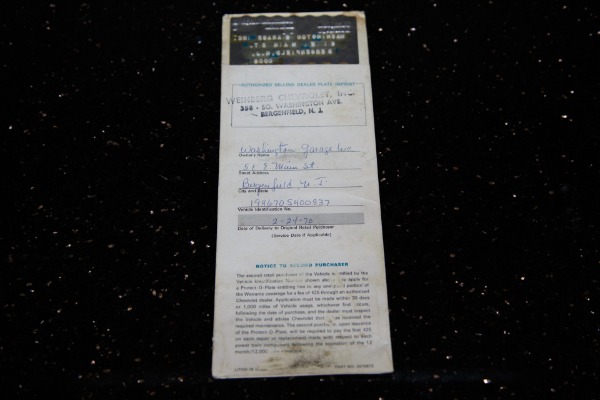 AUTHORIZED SELLING DEALER PLATE IMPRINT
WEINBERG CHEVROLET, INC.
398 - SO. WASHINGTON AVE.
BERGENFIELD, N. J.
Washington Garage Inc
Owner's Name
51 E. Main St.
Street Address
Bergenfield N. J.
City and State
194670S400837
Vehicle Identification No.
2-24-70
Date of Delivery to Original Retail Purchaser
(Service Date if Applicable)
NOTICE TO SECOND PURCHASER
The second retail purchaser of the Vehicle identified by the
Vehicle Identification Number shown above may apply for
a Protect-O-Plate entitling him to any unexpired portion of
the Warranty coverage for a fee of $25 through an authorized
Chevrolet dealer. Application must be made within 30 days
or 1,000 miles of Vehicle usage, whichever first occurs,
following the date of purchase, and the dealer must inspect
the Vehicle and advise Chevrolet that has received the
required maintenance. The second purchaser, upon issuance
of the Protect-O-Plate, will be required to pay the first $25
on each repair or replacement made with respect to each
power train component following the expiration of the 12
month/12,000
LITHO IN U.S.A.
PART NO.